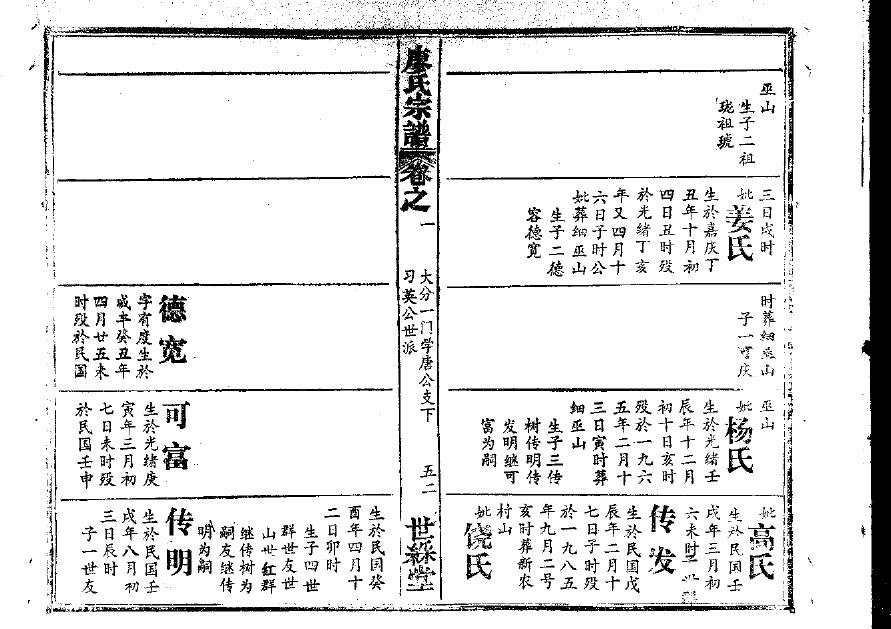 巫山
生子二祖
珑祖琥
三日戌时
妣姜氏
生於嘉庆丁
丑年十月初
四日丑时殁
於光绪丁亥
年又四月十
六日子时公
妣葬细巫山
生子二德
容德宽
时葬细巫山
子一可庆
巫山
妣杨氏
生於光绪壬
辰年十二月
初十日亥时
殁於一九六
五年二月十
三日寅时葬
细巫山
生子三传
树传明传
发明继可
富为嗣
妣高氏
生於民国壬
戌年三月初
六未时
传发
生於民国戊
辰年二月十
七日子时殁
於一九八五
年九月二号
亥时葬新农
村山
妣饶氏
廖氏宗谱
卷之
一
大分一门学唐公支下
习英公世派
五二
世綵堂
德宽
字有度生於
咸丰癸丑年
四月廿五未
时殁於民国
可富
生於光绪庚
寅年三月初
七日未时殁
於民国壬申
生於民国癸
酉年四月十
二日卯时
生子四世
群世友世
山世红群
继传树为
嗣友继传
明为嗣
传明
生於民国壬
戌年八月初
三日辰时
子一世友